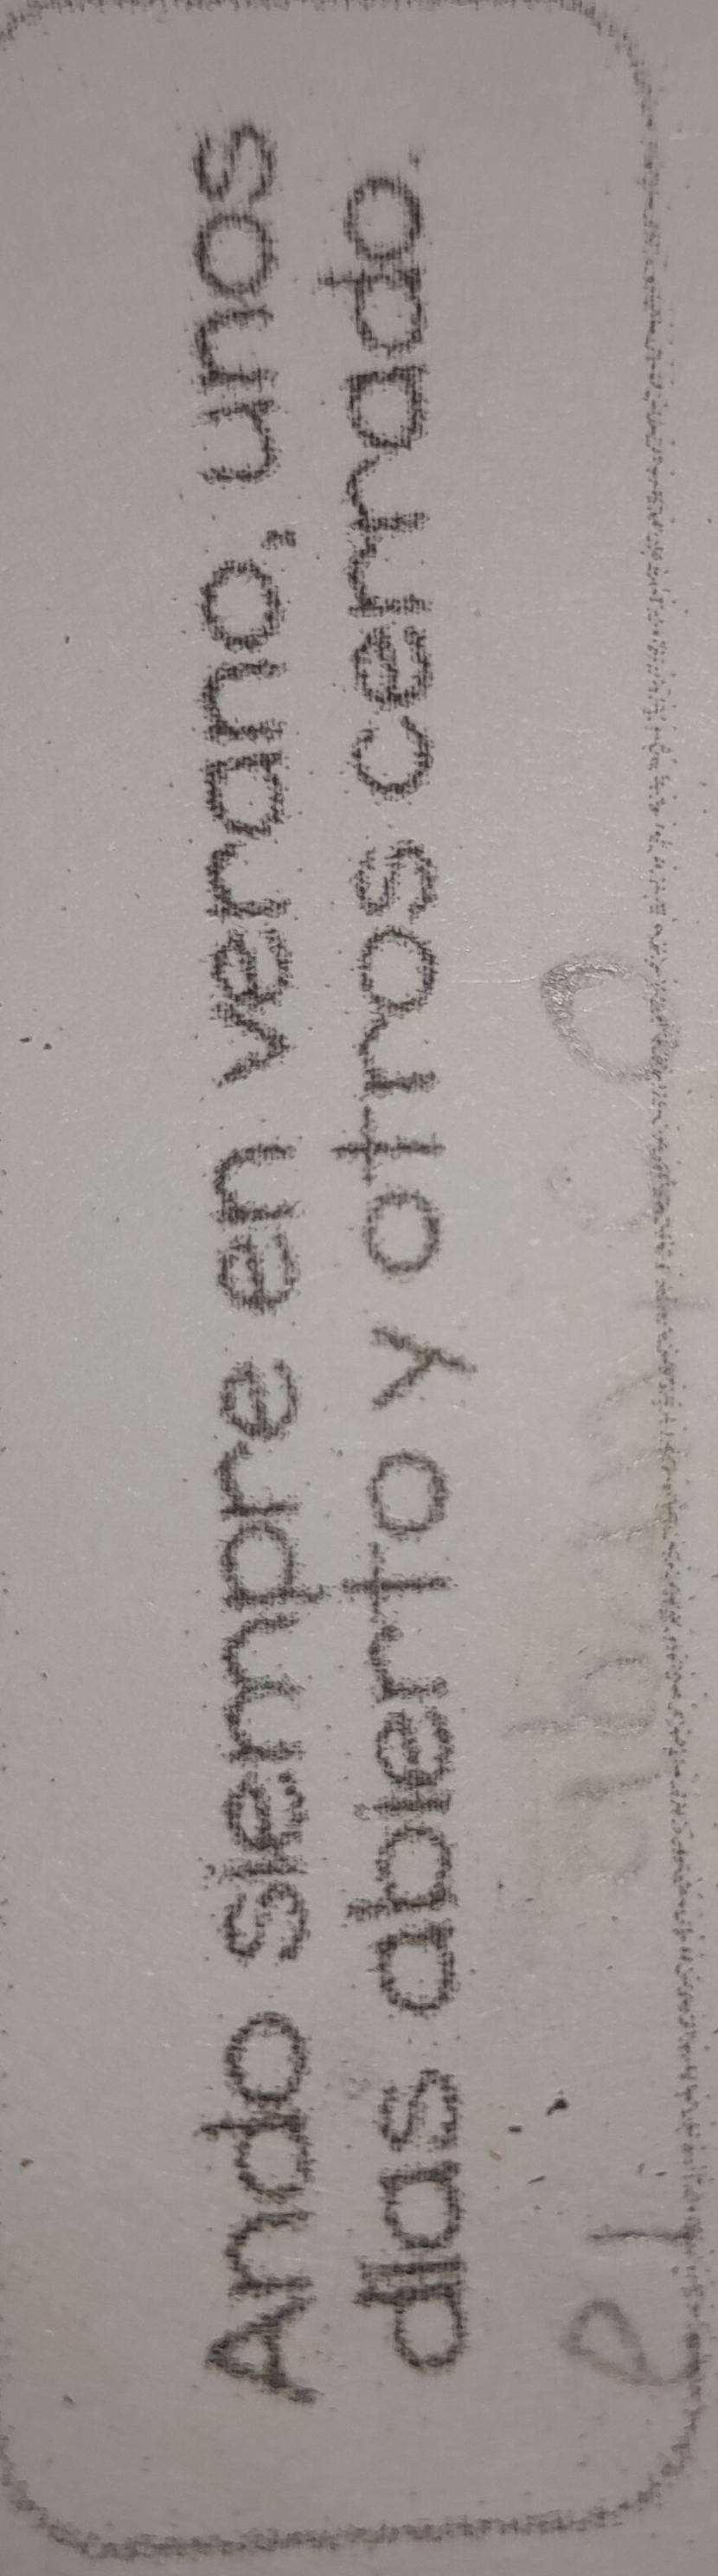 Ando siempre en verano, unos
días abierto y otros cerrado.
el